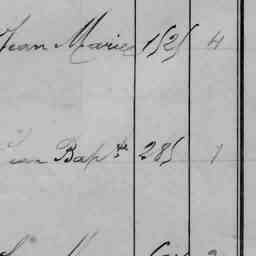 Jean Marie 1525 4
Jean Bapte 285 1